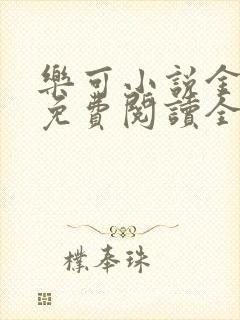 樂可小說全
免費閱讀全
樸奉珠